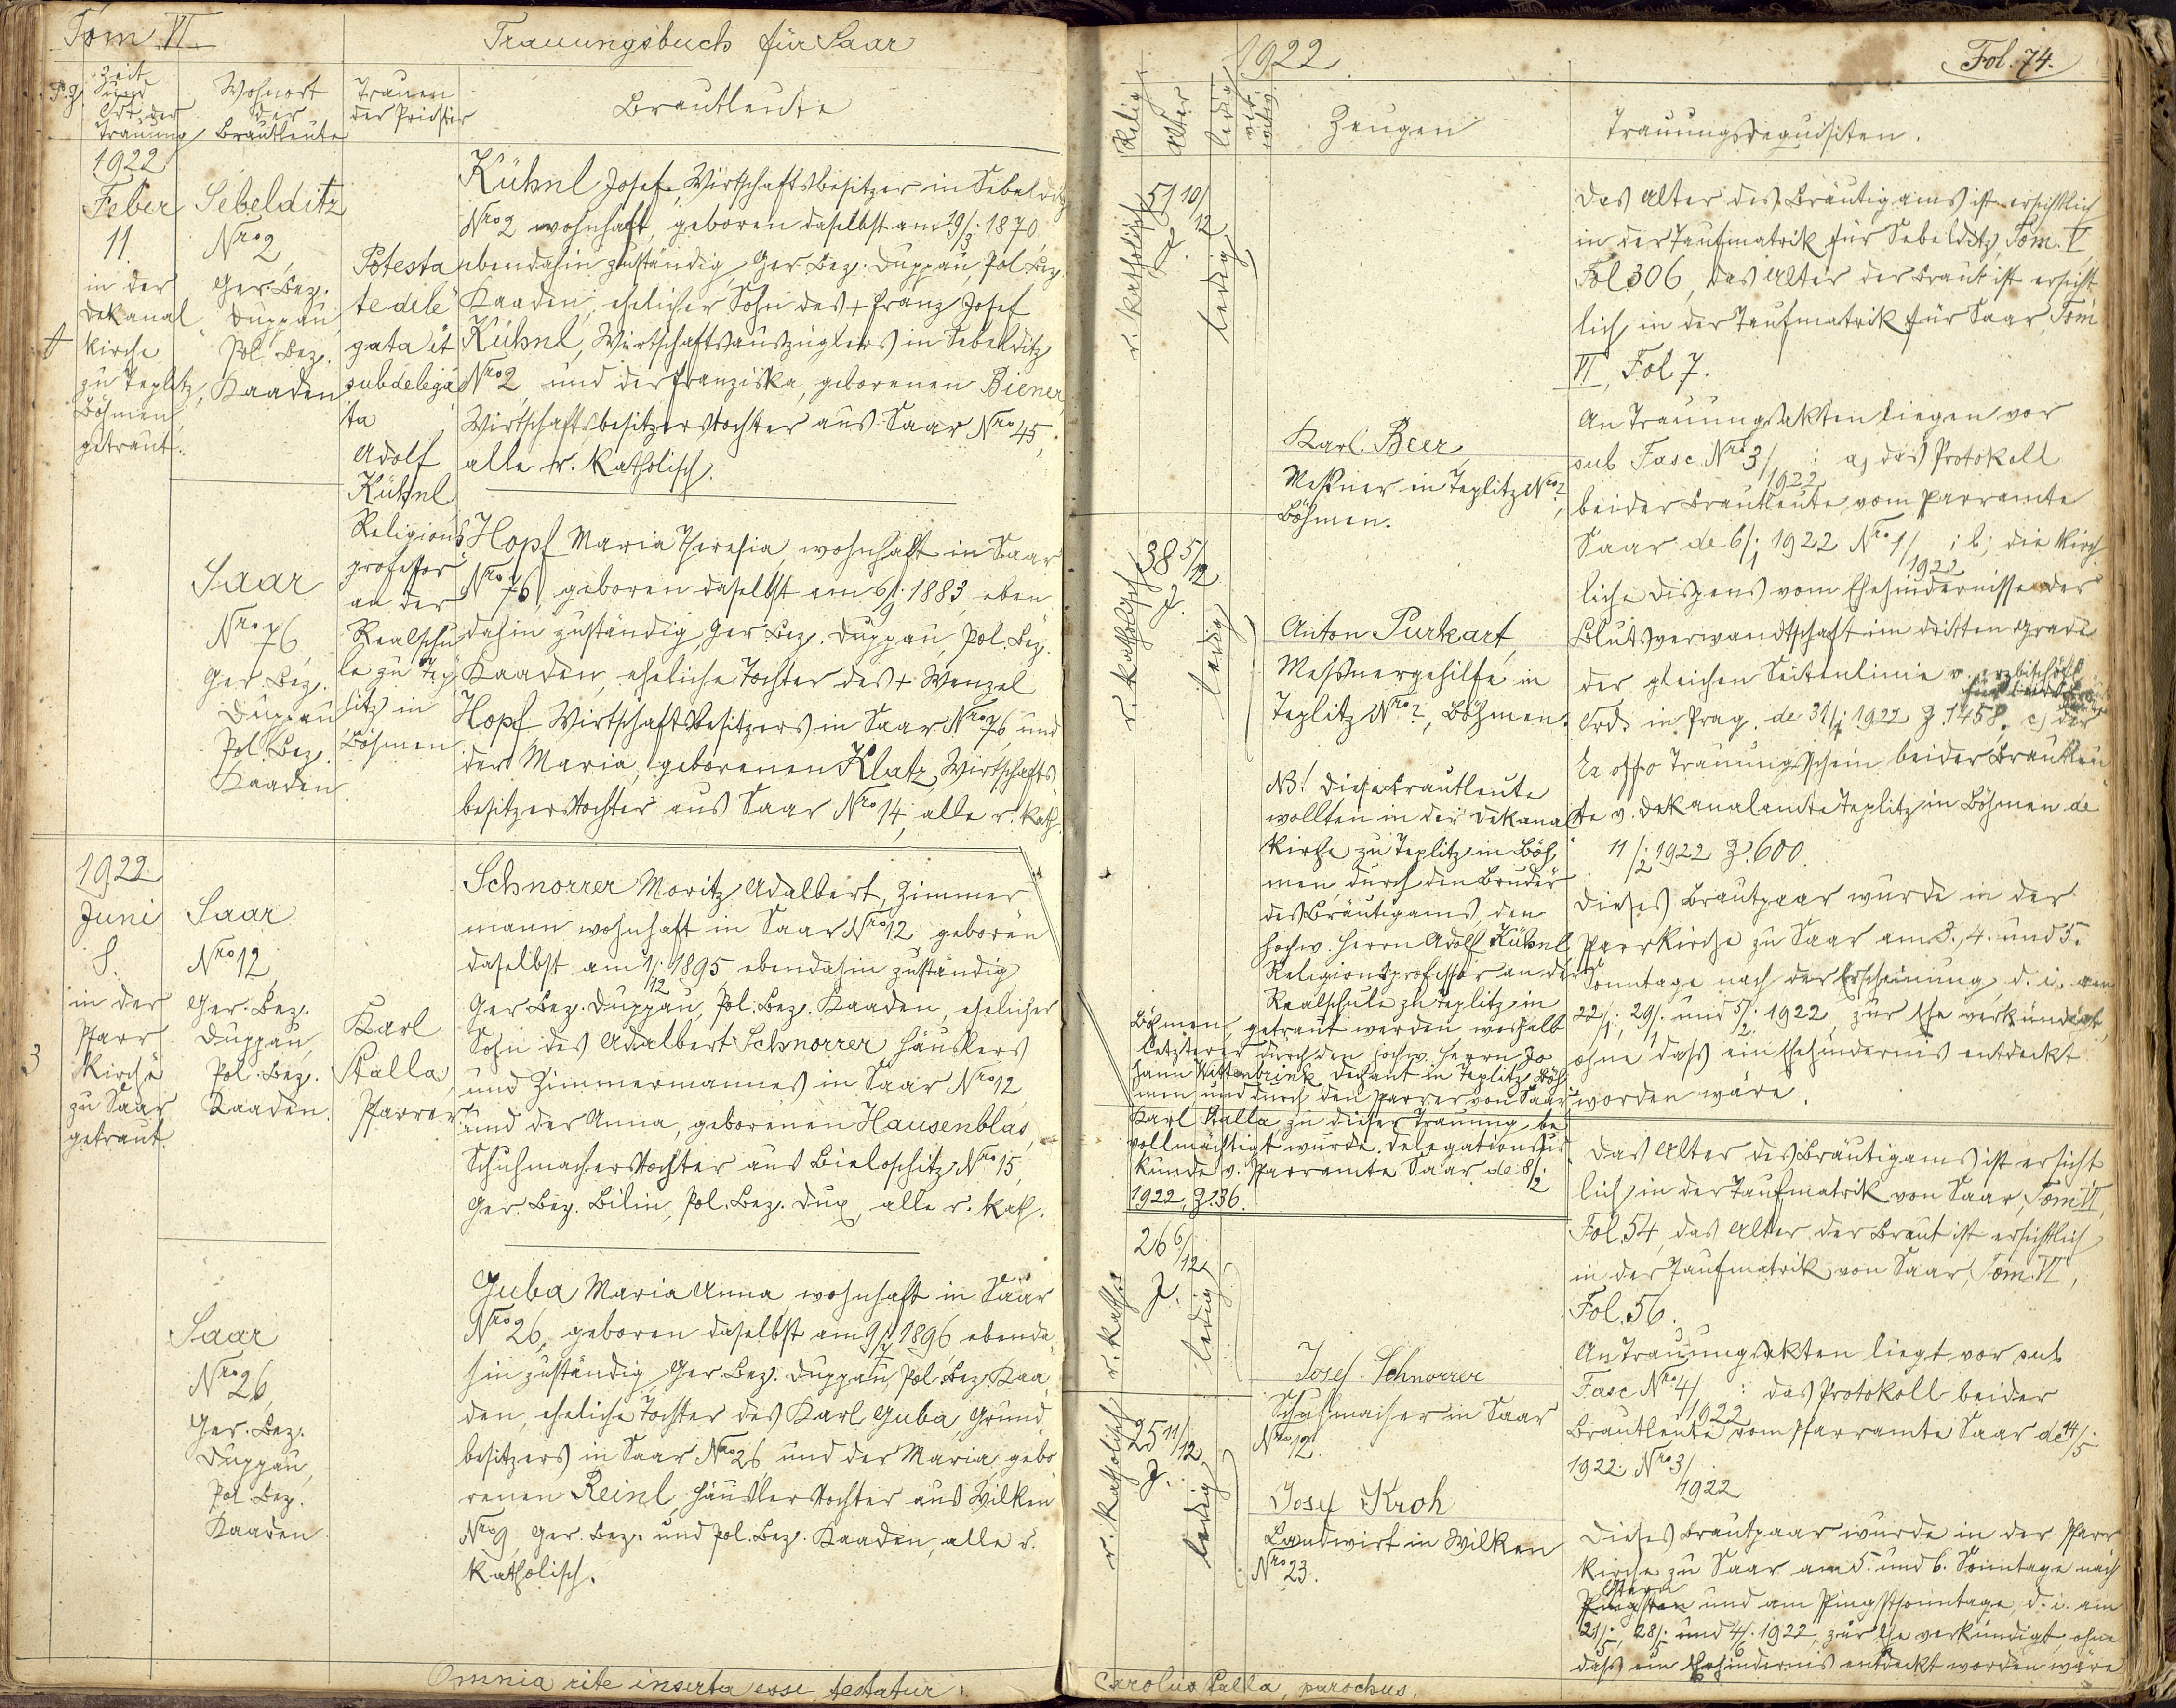 Tom VI
Trauungsbuch für Saar
P. Z.
Zeit
und
Ort der
Trauung
Wohnort
der
Brautleute
Trauen
der Priester
Brautleute
1922
Feber
11.
in der
Dekanal
kirche
zu Teplitz,
Böhmen,
getraut.
Sebelditz
Nro 2,
Ger. Bez.
Duppau
Pol. Bez.
Kaaden
Potesta
te dele
gata et
subdelega
ta
Adolf
Kühnl
Religions
professor
an der
Realschu
le zu Tep
litz in
Böhmen
Kühnl Josef, Wirtschaftsbesitzer in Sebelditz
Nro 2 wohnhaft, geboren daselbst am 19/3. 1870,
ebendahin zuständig, Ger. Bez. Duppau, Pol. Bez.
Kaaden, ehelicher Sohn des + Franz Josef
Kühnl, Wirtschaftsauszüglers in Sebelditz
Nro 2, und der Franziska, geborenen Biener,
Wirtschaftsbesitzerstochter aus Saar Nro 45,
alle r. katholisch.
Saar
Nro 76,
Ger. Bez.
Duppau
Pol. Bez.
Kaaden.
Hopf Maria Theresia, wohnhaft in Saar
Nro 76, geboren daselbst am 6/9. 1883, eben
dahin zuständig, Ger. Bez. Duppau, Pol. Bez.
Kaaden, eheliche Tochter des + Wenzel
Hopf, Wirtschaftsbesitzers in Saar Nro 76, und
der Maria, geborenen Klatz, Wirtschafts
besitzerstochter aus Saar Nro 14, alle r. kath.
1922
Juni
8.
in der
Pfarr
kirche
zu Saar
getraut
3
Saar
Nro 12,
Ger. Bez.
Duppau,
Pol. Bez.
Kaaden.
Karl
Stalla,
Pfarrer
Schnorrer Moritz Adalbert, Zimmer
mann wohnhaft in Saar Nro 12 geboren
daselbst am 1/12. 1895 ebendahin zuständig,
Ger. Bez. Duppau, Pol. Bez. Kaaden, ehelicher
Sohn des Adalbert Schnorrer Häuslers
und Zimmermannes in Saar Nro 12,
und der Anna, geborenen Hausenblas,
Schuhmacherstochter aus Bieloschitz Nro 15,
Ger. Bez. Bilin, Pol. Bez. Dux, alle r. kath.
Saar
Nro 26,
Ger. Bez.
Duppau,
Pol. Bez.
Kaaden
Guba Maria Anna, wohnhaft in Saar
Nro 26, geboren daselbst am 9/7. 1896, ebenda
hin zuständig, Ger. Bez. Duppau, Pol. Bez. Kaa
den, eheliche Tochter des Karl Guba, Grund
besitzers in Saar Nro 26 und der Maria, gebo
renen Reinl, Häuslerstochter aus Wilken
Nro 9, Ger. Bez. und Pol. Bez. Kaaden, alle r.
katholisch.
Omnia rite inserta esse testatur:
1922.
Fol. 74.
Relig.
Alter
ledig
Zeugen
Trauungsrequisiten.
r. katholisch
51 10/12
J.
ledig
Karl Beer,
Meßner in Teplitz Nro ?,
Böhmen.
r. katholisch
38 5/12
J.
ledig
Anton Purkart,
Messnergehilfe in
Teplitz Nro ?, Böhmen.
NB! Diese Brautleute
wollten in der Dekanal
kirche zu Teplitz in Böh
men, durch den Bruder
des Bräutigams, den
hochw. Herrn Adolf Kühnl
Religionsprofessor an der
Realschule zu Teplitz in
Böhmen, getraut werden, weshalb
letzterer durch den hochw. Herrn Jo
hann Wittenbrink, Dechant in Teplitz Böh
men und durch den Pfarrer von Saar
Karl Stalla zu dieser Trauung be
vollmächtigt wurde. Delegationsur
kunde v. Pfarramte Saar de 8/2.
1922, Z. 36.
Das Alter des Bräutigams ist ersichtlich
in der Taufmatrik für Sebelditz, Tom. V,
Fol. 306, das Alter der Braut ist ersicht
lich in der Taufmatrik für Saar, Tom
VI, Fol. 7.
An Trauungsakten liegen vor
sub Fasc. Nro 3/1922 : a) das Protokoll
beider Brautleute vom Pfarramte
Saar de 6/1. 1922 Nro 1/1922; b) die kirch
liche Dispens vom Ehehindernisse der
Blutsverwandtschaft im dritten Grade
der gleichen Seitenlinie v. erzbischöfl.
Ord. in Prag. de 31/1. 1922 Z. 1458. c) der
Ex offo Trauungsschein beider Brautleu
te v. Dekanalamte Teplitz in Böhmen de
11/2. 1922 Z. 600.
Dieses Brautpaar wurde in der
Pfarrkirche zu Saar am 3., 4. und 5.
Sonntage nach der Erscheinung, d. i. am
22/1., 29/1. und 5/2. 1922, zur Ehe verkündigt,
ohne dass ein Ehehindernis entdeckt
worden wäre.
r. kath.
26 6/12
J.
ledig
Josef Schnorrer
Schuhmacher in Saar
Nro 12.
r. katholisch
25 11/12
J.
ledig
Josef Kroh
Landwirt in Wilken
Nro 23.
Das Alter des Bräutigams ist ersicht
lich in der Taufmatrik von Saar, Tom VI,
Fol. 54, das Alter der Braut ist ersichtlich
in der Taufmatrik von Saar, Tom. VI,
Fol. 56.
An Trauungsakten liegt vor sub
Fasc Nro 4/1922 : das Protokoll beider
Brautleute vom Pfarramte Saar de 14/5.
1922 Nro 3/1922
Dieses Brautpaar wurde in der Pfarr
kirche zu Saar am 5. und 6. Sonntage nach
Ostern
Pfingsten und am Pfingstsonntage, d. i. am
21/5., 28/5. und 4/6. 1922, zur Ehe verkündigt, ohne
dass ein Ehehindernis entdeckt worden wäre
Carolus Stalla, parochus.